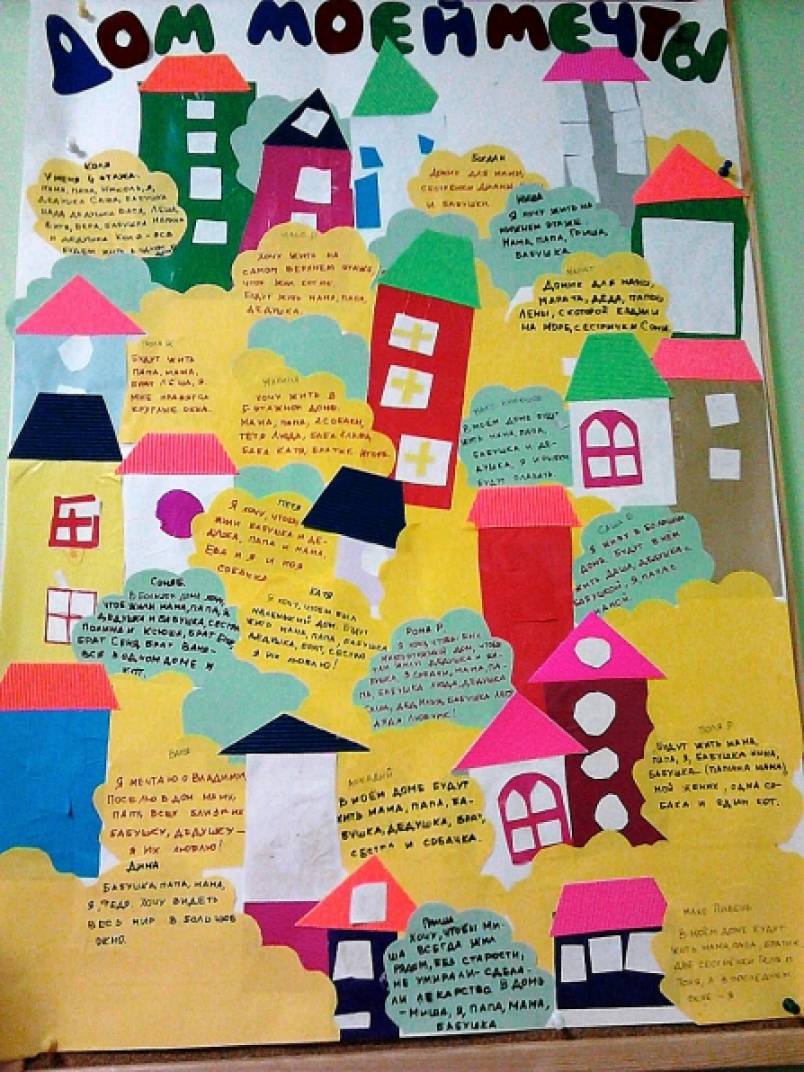 ДОМ МОЕЙ МЕЧТЫ
КОЛЯ
У МЕНЯ 4 ЭТАЖА.
МАМА, ПАПА, НИКОЛЬ, Я,
ДЕДУШКА САША, БАБУШКА
НАДЯ, ДЕДУШКА ВАСЯ, ЛЁША,
ВИТЯ, ВЕРА, БАБУШКА МАРИНА
И ДЕДУШКА КОЛЯ - ВСЕ
БУДЕМ ЖИТЬ В ОДНОМ
БОГДАН
ДОМИК ДЛЯ МАМЫ,
СЕСТРЁНКИ ДИАНЫ
И БАБУШКИ.
МИША
Я ХОЧУ ЖИТЬ НА
НИЖНЕМ ЭТАЖЕ
МАМА, ПАПА, ГРИША,
БАБУШКА.
ХОЧУ ЖИТЬ НА
САМОМ ВЕРХНЕМ ЭТАЖЕ,
БУДУТ ЖИТЬ МАМА, ПАПА,
ДЕДУШКА.
МАРАТ
ДОМИК ДЛЯ МАМЫ,
МАРАТА, ДЕДА, ПАПЫ,
ЛЕНЫ, С КОТОРОЙ ЕЗДИЛИ
НА МОРЕ, СЕСТРИЧКИ СОНИ.
БУДУТ ЖИТЬ
ПАПА, МАМА,
БРАТ ЛЁША, Я.
МНЕ НРАВЯТСЯ
КРУГЛЫЕ ОКНА.
МАРИНА
ХОЧУ ЖИТЬ В
5-ЭТАЖНОМ ДОМЕ.
МАМА, ПАПА, 2 СОБАКИ,
ТЁТЯ ЛЮДА, БАБА СЛАВА,
БАБА КАТЯ, БРАТИК ИГОРЬ.
В МОЁМ ДОМЕ БУДУТ
ЖИТЬ МАМА, ПАПА,
БАБУШКА И ДЕ-
ДУШКА, Я И РЫБКИ
БУДУТ ПЛАВАТЬ.
ПЕТЯ
Я ХОЧУ, ЧТОБЫ
ЖИЛИ БАБУШКА И ДЕ-
ДУШКА, ПАПА И МАМА.
ЕВА И Я И МОЯ
СОБАЧКА
САША
Я ЖИВУ В БОЛЬШОМ
ДОМЕ. БУДУТ В НЁМ
ЖИТЬ ДАША, ДЕДУШКА С
БАБУШКОЙ, Я, ПАПА С
МАМОЙ.
СОНЯ Б.
В БОЛЬШОМ ДОМЕ ХОЧУ,
ЧТОБ ЖИЛИ МАМА, ПАПА, Я,
ДЕДУШКА И БАБУШКА, СЕСТРА
ПОЛИНА И КСЮША, БРАТ ЕГОР,
БРАТ СЕНЯ, БРАТ ВАНЯ -
ВСЕ В ОДНОМ ДОМЕ И
КОТ.
КАТЯ
Я ХОЧУ, ЧТОБЫ БЫЛ
МАЛЕНЬКИЙ ДОМ. БУДУТ
ЖИТЬ МАМА, ПАПА, БАБУШКА
ДЕДУШКА, БРАТ, СЕСТРА
Я ИХ ЛЮБЛЮ!
РОМА Р.
Я ХОЧУ, ЧТОБЫ БЫЛ
МНОГОЭТАЖНЫЙ ДОМ, ЧТОБ
ТАМ ЖИЛИ ДЕДУШКА И БА-
БУШКА, 3 СОБАКИ, МАМА, ПА-
ПА, БАБУШКА ЛЮДА, ДЕДУШКА
САША, ДЕД ИЛЬЯ, БАБУШКА
ВАНЯ
Я МЕЧТАЮ О ВЛАДИМИ
ПОСЕЛЮ В ДОМ МАМУ,
ПАПУ, ВСЕХ БЛИЗКИХ
БАБУШКУ, ДЕДУШКУ -
Я ИХ ЛЮБЛЮ!
АРКАДИЙ
В МОЁМ ДОМЕ БУДУТ
ЖИТЬ МАМА, ПАПА, БА-
БУШКА, ДЕДУШКА, БРАТ,
СЕСТРА И СОБАЧКА.
ПОЛЯ Р.
БУДУТ ЖИТЬ МАМА,
ПАПА, Я, БАБУШКА НИНА,
БАБУШКА (ПАПИНА МАМА)
МОЙ ЖЕНИХ, ОДНА СО-
БАКА И ОДИН КОТ.
ДИНА
БАБУШКА, ПАПА, МАМА,
Я, ФЕДЯ. ХОЧУ ВИДЕТЬ
ВЕСЬ МИР В БОЛЬШОЕ
ОКНО.
ГРИША
ХОЧУ, ЧТОБЫ МИ-
ША ВСЕГДА ЖИЛ
РЯДОМ, БЕЗ СТАРОСТИ,
НЕ УМИРАЛИ - СДЕЛА-
ЛИ ЛЕКАРСТВО. В ДОМЕ
- МИША, Я, ПАПА, МАМА,
БАБУШКА
МАКС
В МОЁМ ДОМЕ БУДУТ
ЖИТЬ МАМА, ПАПА, БРАТИК,
ДВЕ СЕСТРЁНКИ ГЕЛЯ И
ТОНЯ, А В ПОСЛЕДНЕМ
ОКНЕ - Я